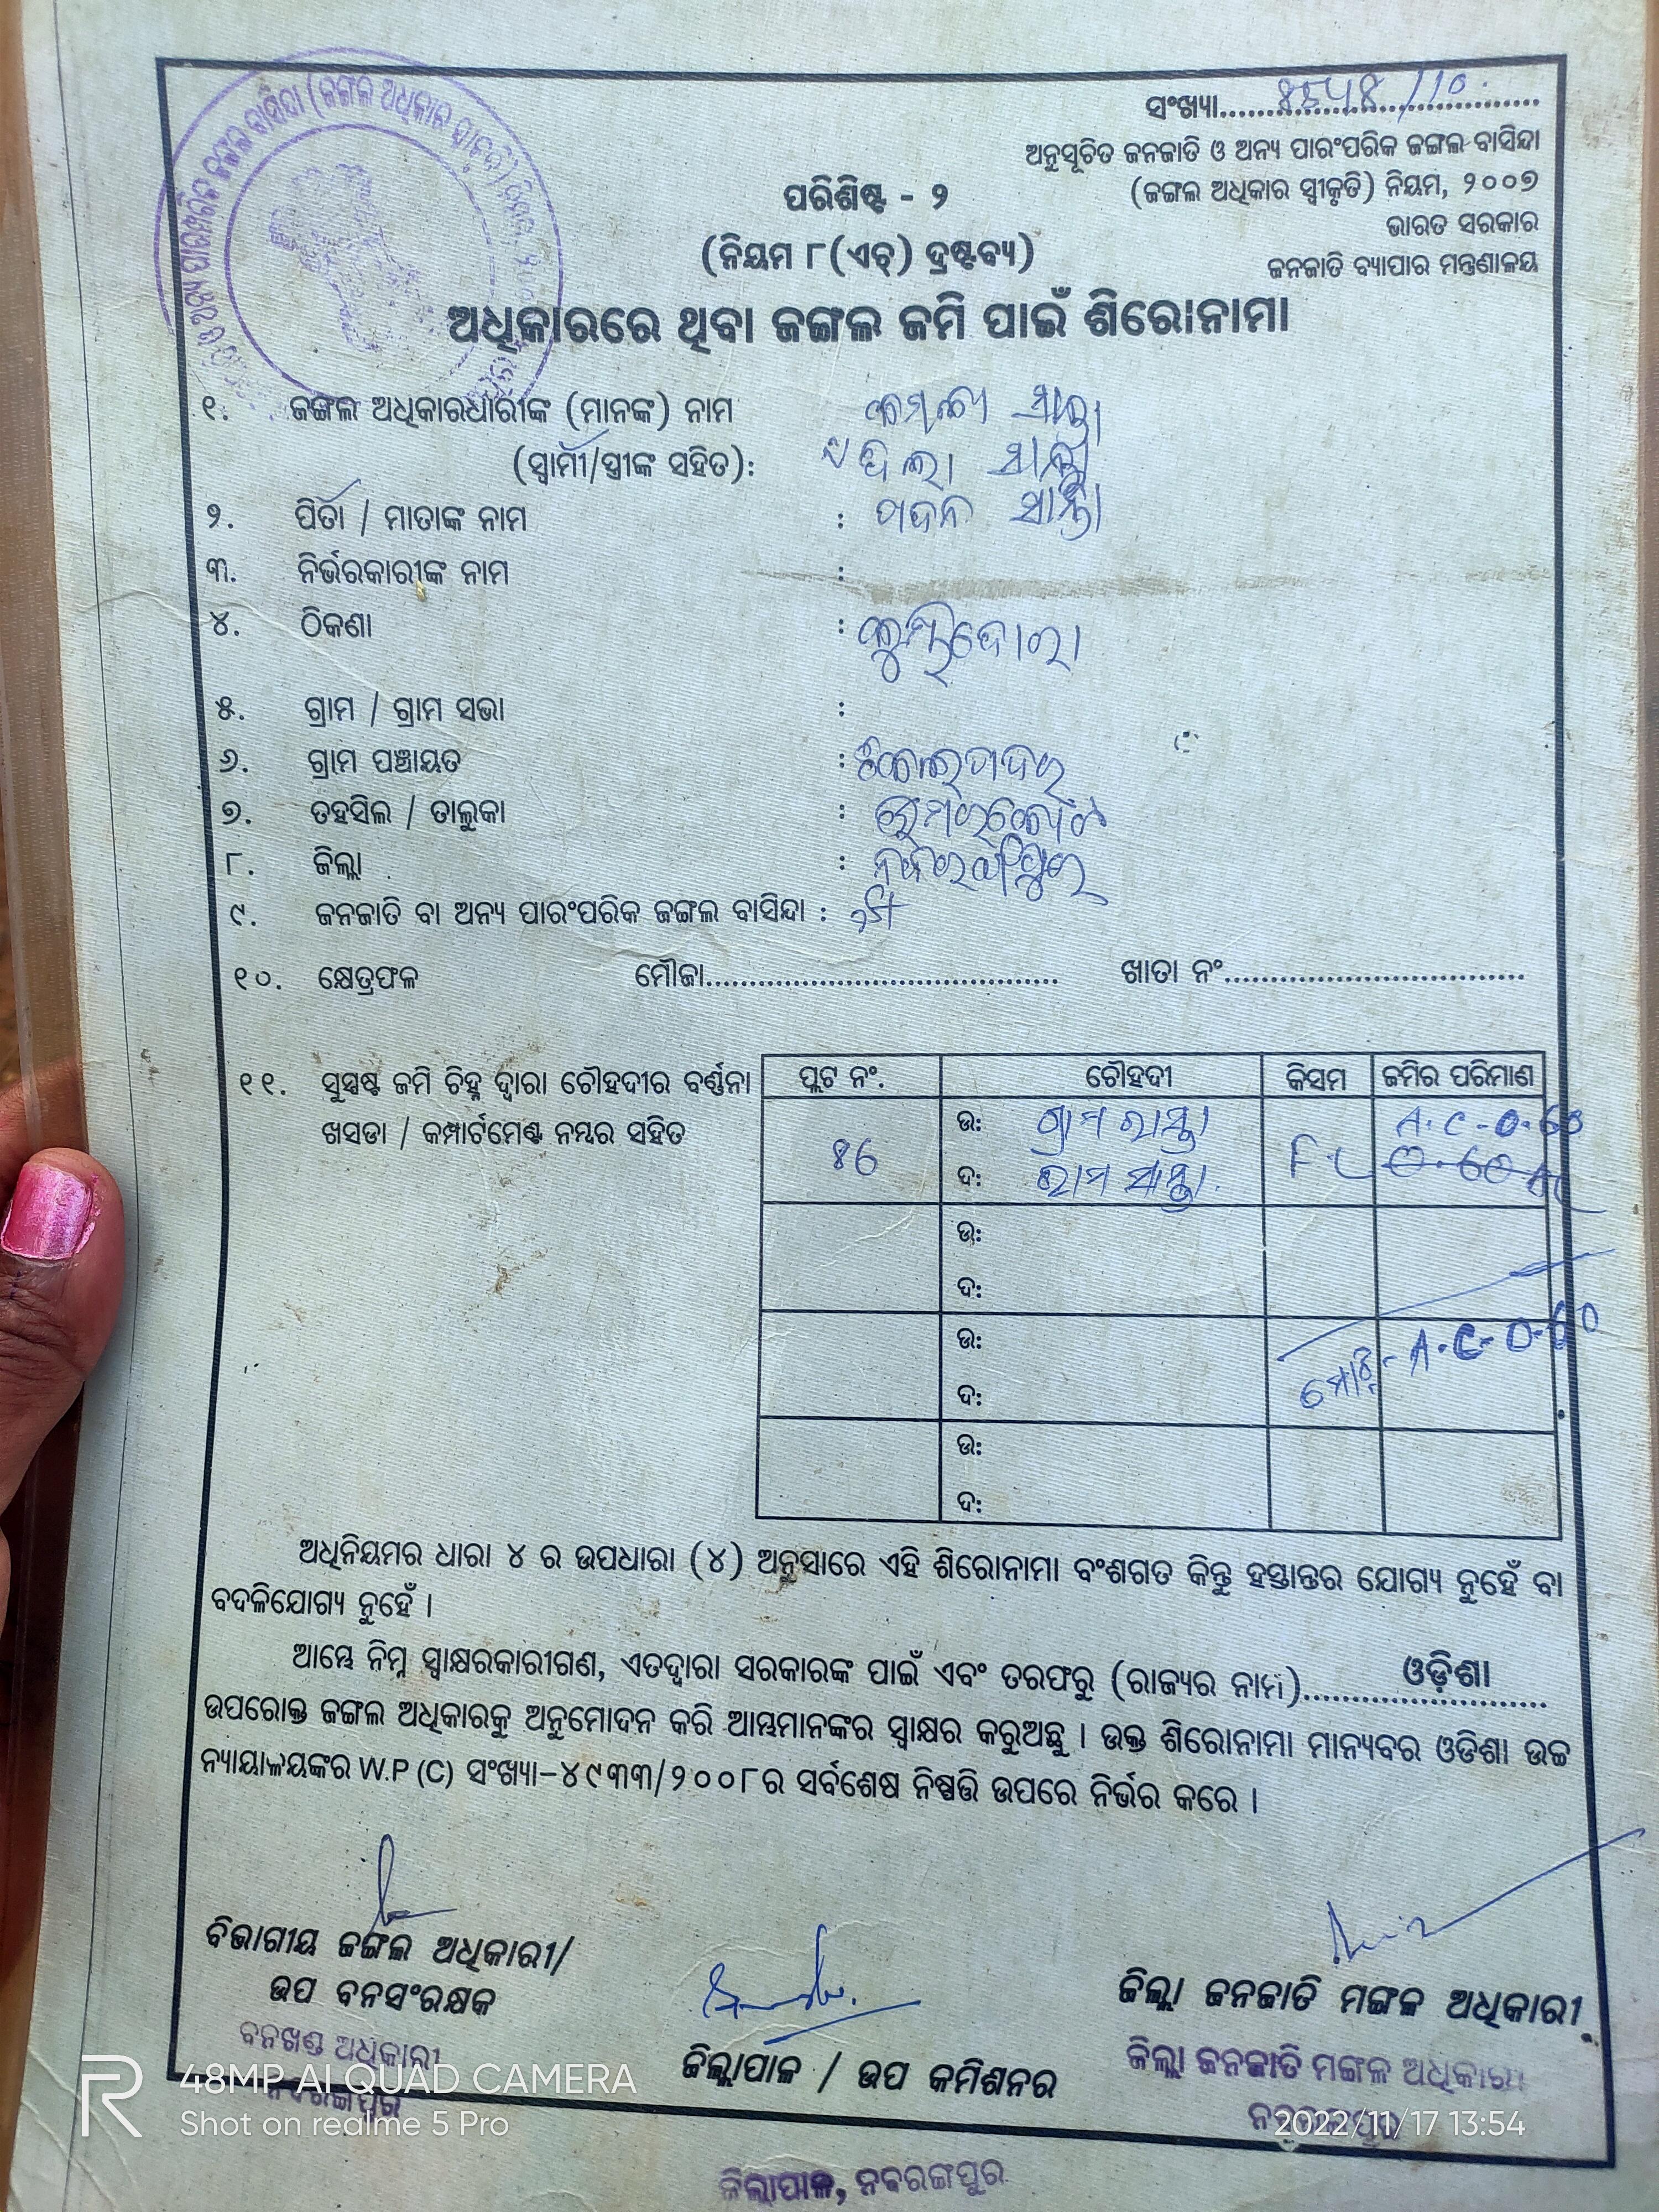 ସଂଖ୍ୟା.................................
ଅନୁସୂଚିତ ଜନଜାତି ଓ ଅନ୍ୟ ପାରଂପରିକ ଜଙ୍ଗଲ-ବାସିନ୍ଦା
(ଜଙ୍ଗଲ ଅଧିକାର ସ୍ୱୀକୃତି) ନିୟମ, ୨୦୦୭
ଭାରତ ସରକାର
ଜନଜାତି ବ୍ୟାପାର ମନ୍ତ୍ରଣାଳୟ
ପରିଶିଷ୍ଟ - ୨
(ନିୟମ ୮(ଏଚ୍) ଦ୍ରଷ୍ଟବ୍ୟ)
ଅଧିକାରରେ ଥିବା ଜଙ୍ଗଲ ଜମି ପାଇଁ ଶିରୋନାମା
୧. ଜଙ୍ଗଲ ଅଧିକାରଧାରୀଙ୍କ (ମାନଙ୍କ) ନାମ
(ସ୍ୱାମୀ/ସ୍ତ୍ରୀଙ୍କ ସହିତ):
୨. ପିତା / ମାତାଙ୍କ ନାମ :
୩. ନିର୍ଭରକାରୀଙ୍କ ନାମ :
୪. ଠିକଣା :
୫. ଗ୍ରାମ / ଗ୍ରାମ ସଭା :
୬. ଗ୍ରାମ ପଞ୍ଚାୟତ :
୭. ତହସିଲ / ତାଲୁକା :
୮. ଜିଲ୍ଲା : ନବରଙ୍ଗପୁର
୯. ଜନଜାତି ବା ଅନ୍ୟ ପାରଂପରିକ ଜଙ୍ଗଲ ବାସିନ୍ଦା :
୧୦. କ୍ଷେତ୍ରଫଳ ମୌଜା....................................... ଖାତା ନଂ.................................
୧୧. ସୁସ୍ପଷ୍ଟ ଜମି ଚିହ୍ନ ଦ୍ୱାରା ଚୌହଦୀର ବର୍ଣ୍ଣନା
ଖସଡା / କମ୍ପାର୍ଟମେଣ୍ଟ ନମ୍ବର ସହିତ
ପ୍ଲଟ ନଂ. ଚୌହଦୀ କିସମ ଜମିର ପରିମାଣ
ଉ: ଗ୍ରାମ ରାସ୍ତା A.C-0.60
ଦ: ରାମ ସାନ୍ତା
ଉ:
ଦ:
ଉ:
ମୋଟ - A.C-0-60
ଦ:
ଉ:
ଦ:
ଅଧିନିୟମର ଧାରା ୪ ର ଉପଧାରା (୪) ଅନୁସାରେ ଏହି ଶିରୋନାମା ବଂଶଗତ କିନ୍ତୁ ହସ୍ତାନ୍ତର ଯୋଗ୍ୟ ନୁହେଁ ବା
ବଦଳିଯୋଗ୍ୟ ନୁହେଁ ।
ଆମ୍ଭେ ନିମ୍ନ ସ୍ୱାକ୍ଷରକାରୀଗଣ, ଏତଦ୍ୱାରା ସରକାରଙ୍କ ପାଇଁ ଏବଂ ତରଫରୁ (ରାଜ୍ୟର ନାମ)......ଓଡ଼ିଶା......
ଉପରୋକ୍ତ ଜଙ୍ଗଲ ଅଧିକାରକୁ ଅନୁମୋଦନ କରି ଆମ୍ଭମାନଙ୍କର ସ୍ୱାକ୍ଷର କରୁଅଛୁ । ଉକ୍ତ ଶିରୋନାମା ମାନ୍ୟବର ଓଡିଶା ଉଚ୍ଚ
ନ୍ୟାୟାଳୟଙ୍କର W.P (C) ସଂଖ୍ୟା-୪୯୩୩/୨୦୦୮ର ସର୍ବଶେଷ ନିଷ୍ପତ୍ତି ଉପରେ ନିର୍ଭର କରେ ।
ବିଭାଗୀୟ ଜଙ୍ଗଲ ଅଧିକାରୀ/
ଉପ ବନସଂରକ୍ଷକ
ବନଖଣ୍ଡ ଅଧିକାରୀ
ନବରଙ୍ଗପୁର
ଜିଲ୍ଲାପାଳ / ଉପ କମିଶନର
ଜିଲ୍ଲାପାଳ, ନବରଙ୍ଗପୁର
ଜିଲ୍ଲା ଜନଜାତି ମଙ୍ଗଳ ଅଧିକାରୀ
ଜିଲ୍ଲା ଜନଜାତି ମଙ୍ଗଳ ଅଧିକାରୀ
ନବରଙ୍ଗପୁର
48MP AI QUAD CAMERA
Shot on realme 5 Pro
2022/11/17 13:54